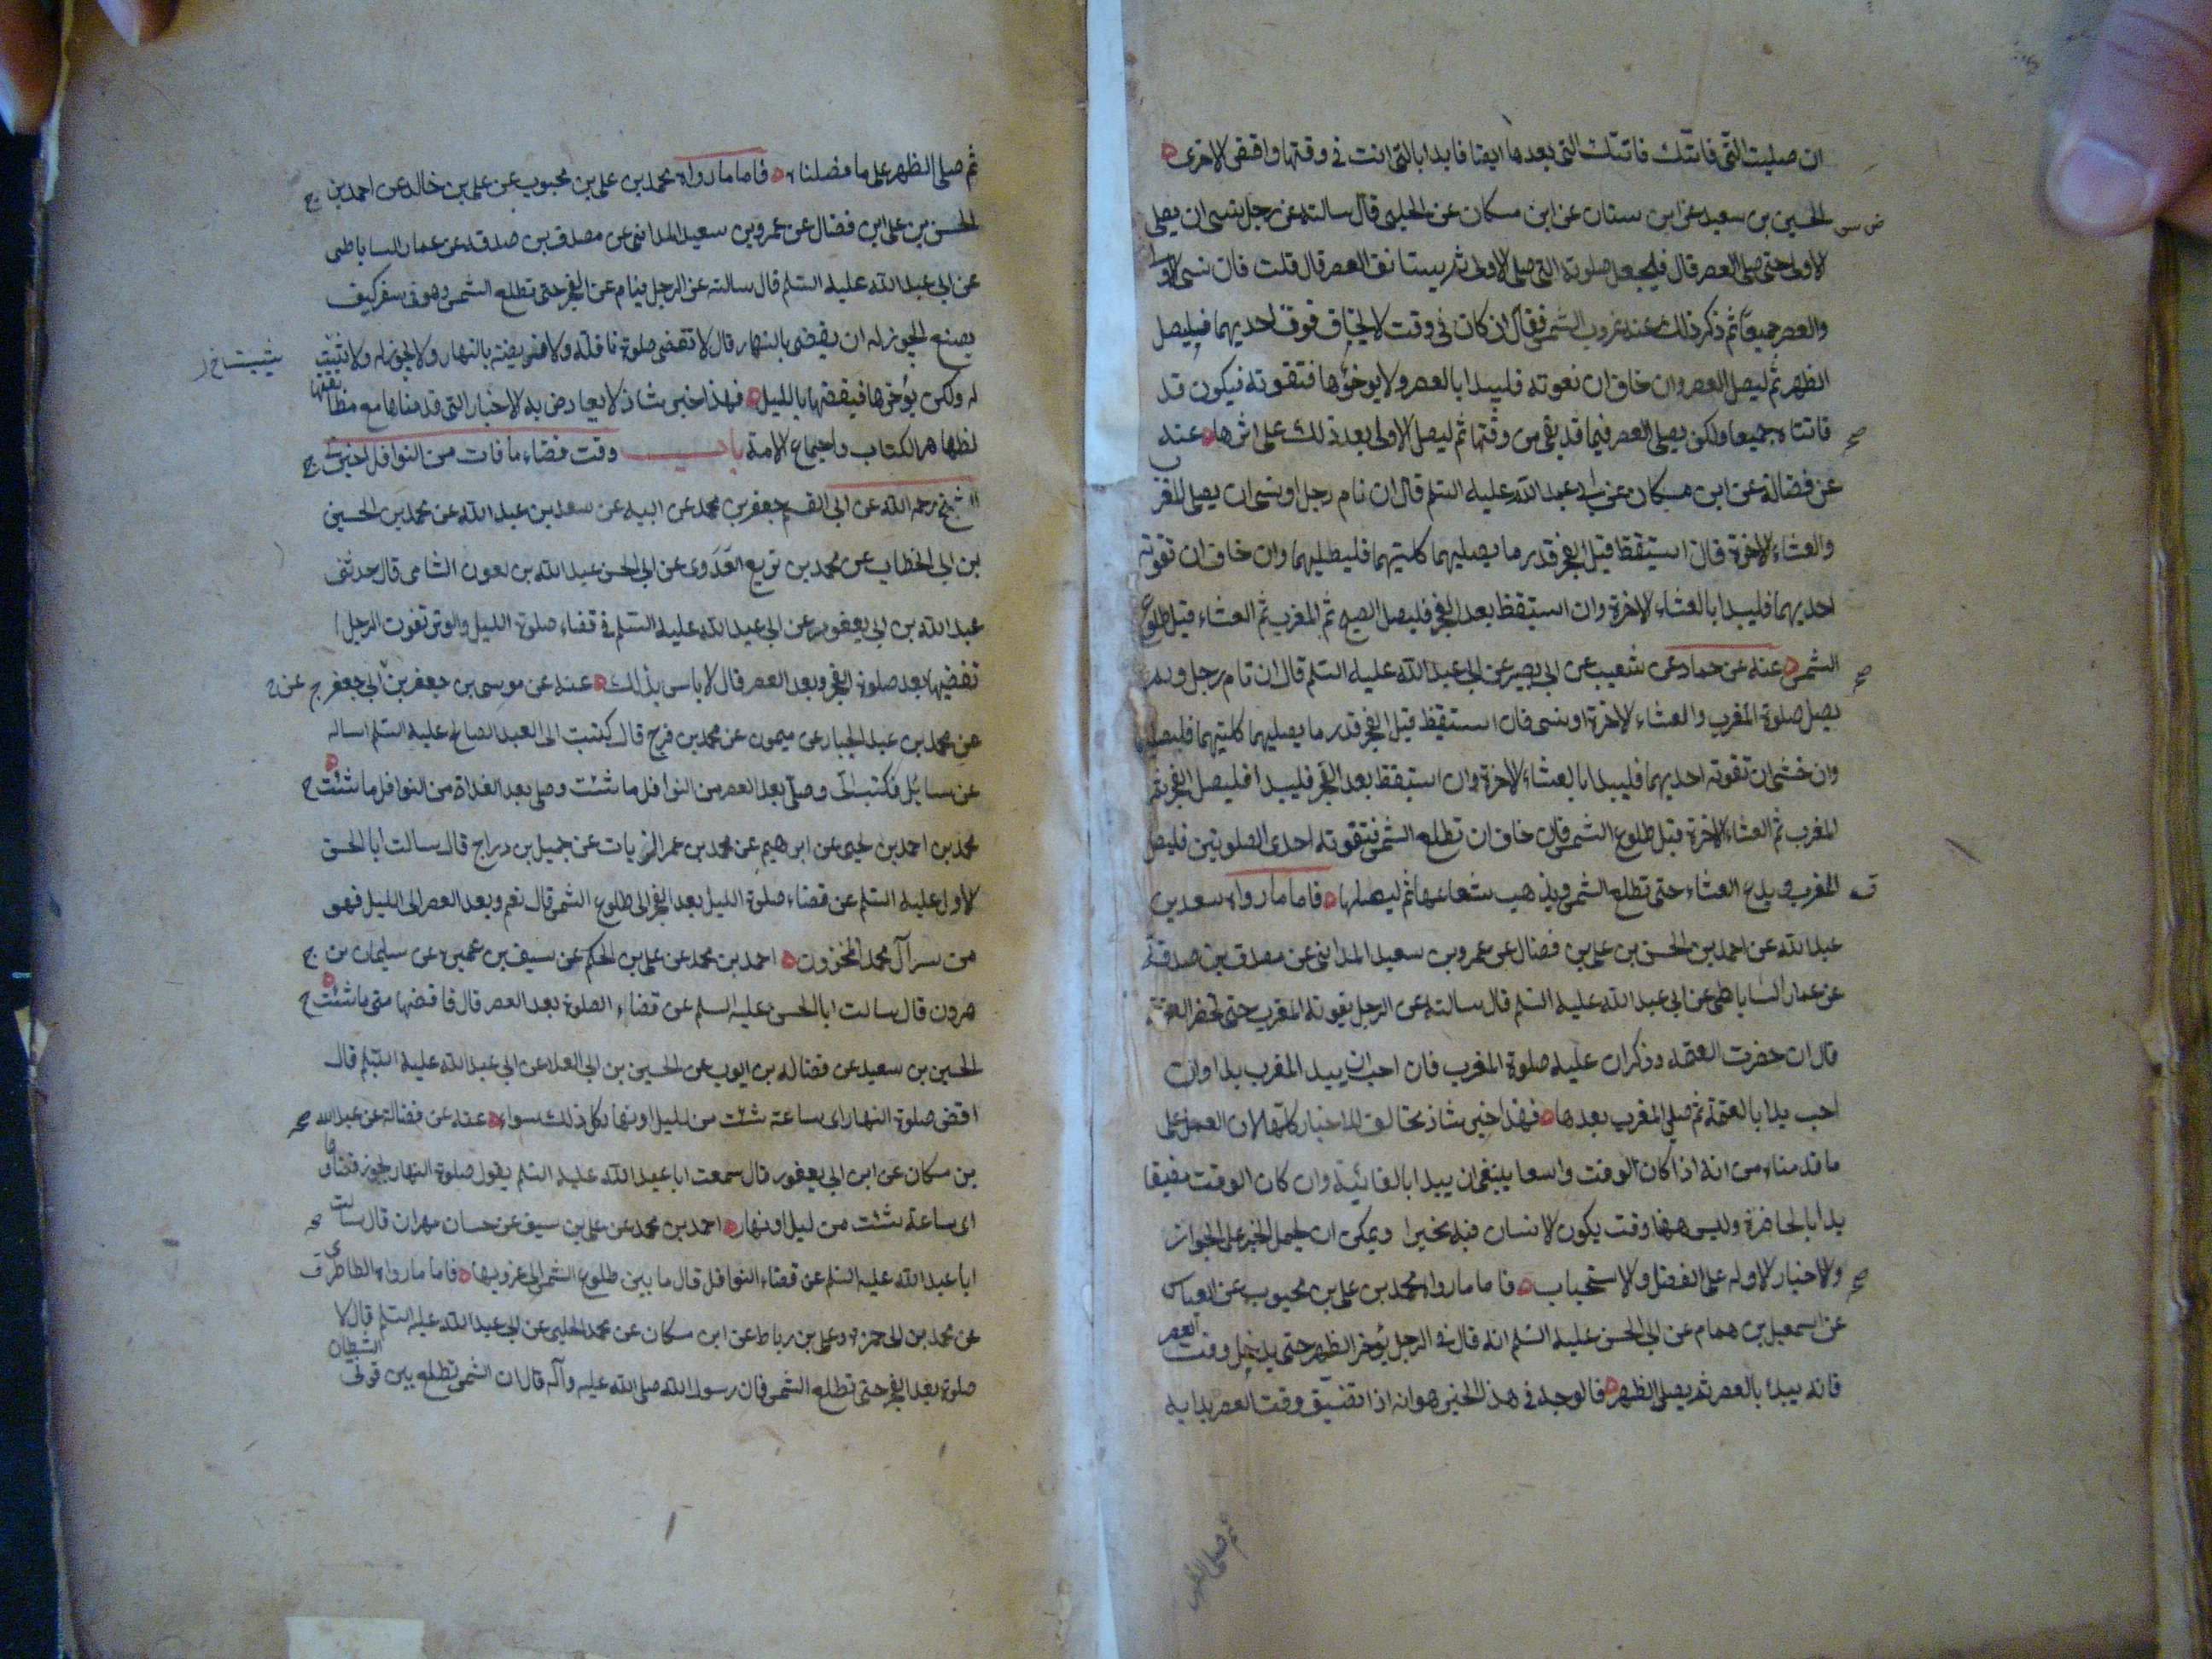 ان صليت التى فاتتك فاتتك التى بعدها ايضا فابدا بالتى انت فى وقتها واقض الاخرى ه
الحسين بن سعيد عن ابن سنان عن ابن مسكان عن الحلبى قال سالته عن رجل نسى ان يصلى
الاولى حتى صلى العصر قال فليجعل صلوته التى صلى الاولى ثم يستانف العصر قال قلت فان نسى الاولى
والعصر جميعا ثم ذكر ذلك عند غروب الشمس فقال ان كان فى وقت لا يخاف فوت احديهما فليصل
الظهر ثم ليصل العصر وان خاف ان تفوته فليبدا بالعصر ولا يؤخرها فتفوته فيكون قد
فاتتاه جميعا ولكن يصلى العصر فيما قد بقى من وقتها ثم ليصل الاولى بعد ذلك على اثرها ه عنه
عن فضالة عن ابن مسكان عن ابى عبد الله عليه السلم قال ان نام رجل او نسى ان يصلى المغرب
والعشاء الاخرة فان استيقظ قبل الفجر قدر ما يصليهما كلتيهما فليصليهما وان خاف ان تفوته
احديهما فليبدا بالعشاء الاخرة وان استيقظ بعد الفجر فليصل الصبح ثم المغرب ثم العشاء قبل طلوع
الشمس ه عنه عن حماد عن شعيب عن ابى بصير عن ابى عبد الله عليه السلم قال ان نام رجل ولم
يصل صلوة المغرب والعشاء الاخرة او نسى فان استيقظ قبل الفجر قدر ما يصليهما كلتيهما فليصليهما
وان خشى ان تفوته احديهما فليبدا بالعشاء الاخرة وان استيقظ بعد الفجر فليبدا فليصل الفجر ثم
المغرب ثم العشاء الاخرة قبل طلوع الشمس فان خاف ان تطلع الشمس فتفوته احدى الصلوتين فليصل
المغرب ويدع العشاء حتى تطلع الشمس ويذهب شعاعها ثم ليصلها ه فاما ما رواه سعد بن
عبد الله عن احمد بن الحسن بن على بن فضال عن عمرو بن سعيد المداينى عن مصدق بن صدقة
عن عمار الساباطى عن ابى عبد الله عليه السلم قال سالته عن الرجل يفوته المغرب حتى تحضر العتمة
قال ان حضرت العتمه وذكر ان عليه صلوة المغرب فان احب ان يبدا المغرب بدا وان
احب بدا بالعتمة ثم صلى المغرب بعدها ه فهذا خبر شاذ مخالف للاخبار كلها لان العمل على
ما قدمناه من انه اذا كان الوقت واسعا ينبغى ان يبدا بالفائتة وان كان الوقت مضيقا
بدا بالحاضرة وليس ههنا وقت يكون الانسان فيه مخيرا ويمكن ان يحمل الخبر على الجواز
والاخبار الاوله على الفضل والاستحباب ه فاما ما رواه محمد بن على بن محبوب عن العباس
عن اسمعيل بن همام عن ابى الحسن عليه السلم انه قال فى الرجل يؤخر الظهر حتى يدخل وقت العصر
فانه يبدأ بالعصر ثم يصلى الظهر ه فالوجه فى هذا الخبر هو انه اذا تضيق وقت العصر بدا به
ثم صلى الظهر
ثم صلى الظهر على ما فصلناه ه فاما ما رواه محمد بن على بن محبوب عن على بن خالد عن احمد بن
الحسن بن على بن فضال عن عمرو بن سعيد المداينى عن مصدق بن صدقه عن عمار الساباطى
عن ابى عبد الله عليه السلم قال سالته عن الرجل ينام عن الفجر حتى تطلع الشمس وهو فى سفر كيف
يصنع ايجوز له ان يقضى بالنهار قال لا تقضى صلوة نافلة ولا فريضة بالنهار ولا يجوز له ولا تثبت
له ولكن يؤخرها فيقضيها بالليل ه فهذا خبر شاذ لا يعارض به الاخبار التى قدمناها مع مطابقتها
لظاهر الكتاب واجماع الامة باب وقت قضاء ما فات من النوافل اخبرنى
الشيخ رحمه الله عن ابى القسم جعفر بن محمد عن ابيه عن سعد بن عبد الله عن محمد بن الحسين
بن ابى الخطاب عن محمد بن بزيع العدوى عن ابى الحسن عبد الله بن عون الشامى قال حدثنى
عبد الله بن ابى يعفور عن ابى عبد الله عليه السلم فى قضاء صلوة الليل والوتر تفوت الرجل ا
تقضيها بعد صلوة الفجر وبعد العصر قال لا باس بذلك ه عنه عن موسى بن جعفر بن ابى جعفر
عن محمد بن عبد الجبار عن ميمون عن محمد بن فرج قال كتبت الى العبد الصالح عليه السلم اساله
عن مسائل فكتب الى وصل بعد العصر من النوافل ما شئت وصل بعد الغداة من النوافل ما شئت ه
محمد بن احمد بن يحيى عن ابرهيم عن محمد بن عمر الزيات عن جميل بن دراج قال سالت ابا الحسن
الاول عليه السلم عن قضاء صلوة الليل بعد الفجر الى طلوع الشمس قال نعم وبعد العصر الى الليل فهو
من سر آل محمد المخزون ه احمد بن محمد عن على بن الحكم عن سيف بن عميرة عن سليمان بن
هرون قال سالت ابا الحسن عليه السلم عن قضاء الصلوة بعد العصر قال فاقضها متى ما شئت ه
الحسين بن سعيد عن فضاله بن ايوب عن الحسين بن ابى العلاء عن ابى عبد الله عليه السلم قال
اقض صلوة النهار اى ساعة شئت من ليل او نهار كل ذلك سواء ه عنه عن فضالة عن عبد الله
بن مسكان عن ابن ابى يعفور قال سمعت ابا عبد الله عليه السلم يقول صلوة النهار يجوز قضاؤها
اى ساعة شئت من ليل او نهار ه احمد بن محمد عن على بن سيف عن حسان مهران قال سالت
ابا عبد الله عليه السلم عن قضاء النوافل قال ما بين طلوع الشمس الى غروبها ه فاما ما رواه الطاطرى
عن محمد بن ابى حمزة وعلى بن رباط عن ابن مسكان عن محمد الحلبى عن ابى عبد الله عليه السلم قال لا
صلوة بعد الفجر حتى تطلع الشمس فان رسول الله صلى الله عليه وآله قال ان الشمس تطلع بين قرنى الشيطان